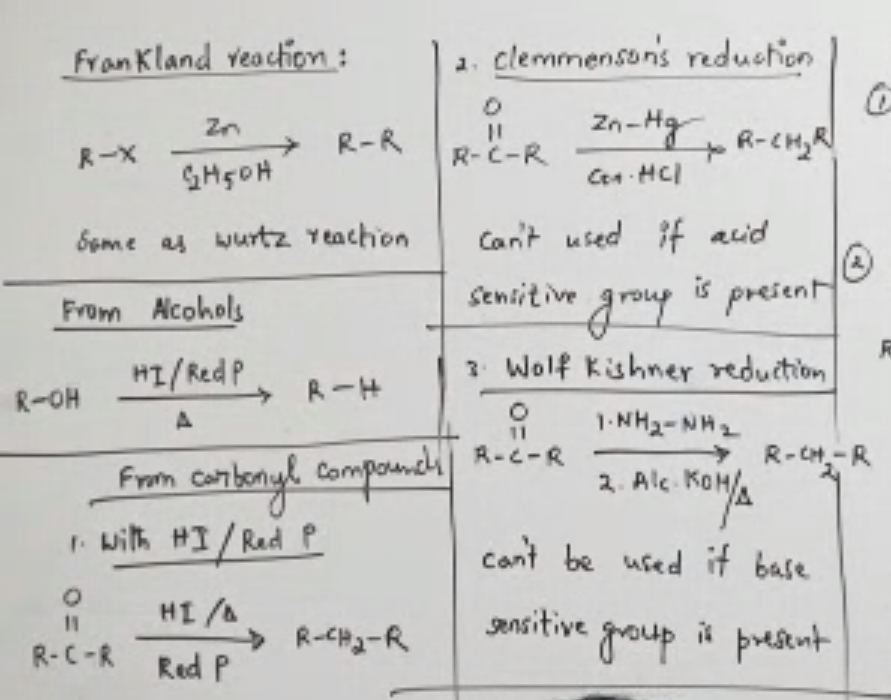 Frankland reaction:
R-X Zn C2H5OH → R-R
Same as wurtz reaction
From Alcohols
R-OH HI/Red P Δ → R-H
From carbonyl compounds
1. With HI/Red P
O
||
R-C-R HI/Δ Red P → R-CH2-R
2. Clemmenson's reduction
O
||
R-C-R Zn-Hg Con.HCl → R-CH2R
can't used if acid
sensitive group is present
3. Wolf Kishner reduction
O
||
R-C-R 1.NH2-NH2 2.Alc.KOH/Δ → R-CH2-R
can't be used if base
sensitive group is present
①
②
R